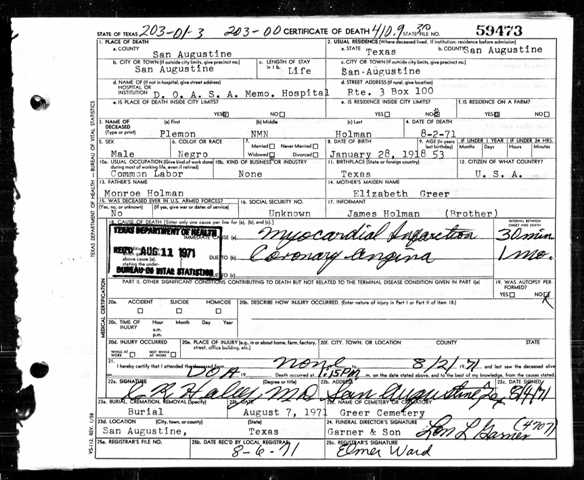 203-01-3 203-00 410.9
STATE OF TEXAS CERTIFICATE OF DEATH STATE FILE NO. 59473
1. PLACE OF DEATH 2. USUAL RESIDENCE (Where deceased lived. If institution, residence before admission)
a. COUNTY San Augustine a. STATE Texas b. COUNTY San Augustine
b. CITY OR TOWN (If outside city limits, give precinct no.) San Augustine c. LENGTH OF STAY in 1 b. Life c. CITY OR TOWN (If outside city limits, give precinct no.) San-Augustine
d. NAME OF (If not in hospital, give street address) HOSPITAL OR INSTITUTION D. O. A. S. A. Memo. Hospital d. STREET ADDRESS (If rural, give location) Rte. 3 Box 100
e. IS PLACE OF DEATH INSIDE CITY LIMITS? YES NO e. IS RESIDENCE INSIDE CITY LIMITS? YES NO f. IS RESIDENCE ON A FARM? YES NO
3. NAME OF DECEASED (Type or print) (a) First Plemon (b) Middle NMN (c) Last Holman 4. DATE OF DEATH 8-2-71
5. SEX Male 6. COLOR OR RACE Negro 7. Married Never Married Widowed Divorced 8. DATE OF BIRTH January 28, 1918 9. AGE (In years last birthday) 53 IF UNDER 1 YEAR Months Days IF UNDER 24 HRS. Hours Min.
10a. USUAL OCCUPATION (Give kind of work done during most of working life, even if retired) Common Labor 10b. KIND OF BUSINESS OR INDUSTRY None 11. BIRTHPLACE (State or foreign country) Texas 12. CITIZEN OF WHAT COUNTRY? U. S. A.
13. FATHER'S NAME Monroe Holman 14. MOTHER'S MAIDEN NAME Elizabeth Greer
15. WAS DECEASED EVER IN U.S. ARMED FORCES? (Yes, no, or unknown) (If yes, give war or dates of service) No 16. SOCIAL SECURITY NO. Unknown 17. INFORMANT James Holman (Brother)
18. CAUSE OF DEATH [Enter only one cause per line for (a), (b), and (c).] INTERVAL BETWEEN ONSET AND DEATH
IMMEDIATE CAUSE (a) Myocardial Infarction 30 min
DUE TO Coronary Angina 1 mo.
TEXAS DEPARTMENT OF HEALTH
REC'D AUG 11 1971
BUREAU OF VITAL STATISTICS
PART II. OTHER SIGNIFICANT CONDITIONS CONTRIBUTING TO DEATH BUT NOT RELATED TO THE TERMINAL DISEASE CONDITION GIVEN IN PART I (a) 19. WAS AUTOPSY PERFORMED? YES NO
20a. ACCIDENT SUICIDE HOMICIDE 20b. DESCRIBE HOW INJURY OCCURRED. (Enter nature of injury in Part I or Part II of item 18.)
20c. TIME OF INJURY Hour Month Day Year a.m. p.m.
20d. INJURY OCCURRED WHILE AT WORK NOT WHILE AT WORK 20e. PLACE OF INJURY (e.g., in or about home, farm, factory, street, office building, etc.) 20f. CITY, TOWN, OR LOCATION COUNTY STATE
21. I hereby certify that I attended the deceased from DOA None 8/2/71 and last saw the deceased alive
Death occurred at 1:15PM m. on the date stated above, and to the best of my knowledge, from the causes stated.
22a. SIGNATURE (Degree or title) Haley MD 22b. ADDRESS San Augustine 22c. DATE SIGNED
23a. BURIAL, CREMATION, REMOVAL (Specify) Burial 23b. DATE August 7, 1971 23c. NAME OF CEMETERY OR CREMATORY Greer Cemetery
23d. LOCATION San Augustine, Texas 24. FUNERAL DIRECTOR'S SIGNATURE Garner & Son Lon L Garner (4707)
25a. REGISTRAR'S FILE NO. 25b. DATE REC'D BY LOCAL REGISTRAR 8-6-71 25c. REGISTRAR'S SIGNATURE Elmer Ward
TEXAS DEPARTMENT OF HEALTH — BUREAU OF VITAL STATISTICS
MEDICAL CERTIFICATION
VS-112 REV. 1/58